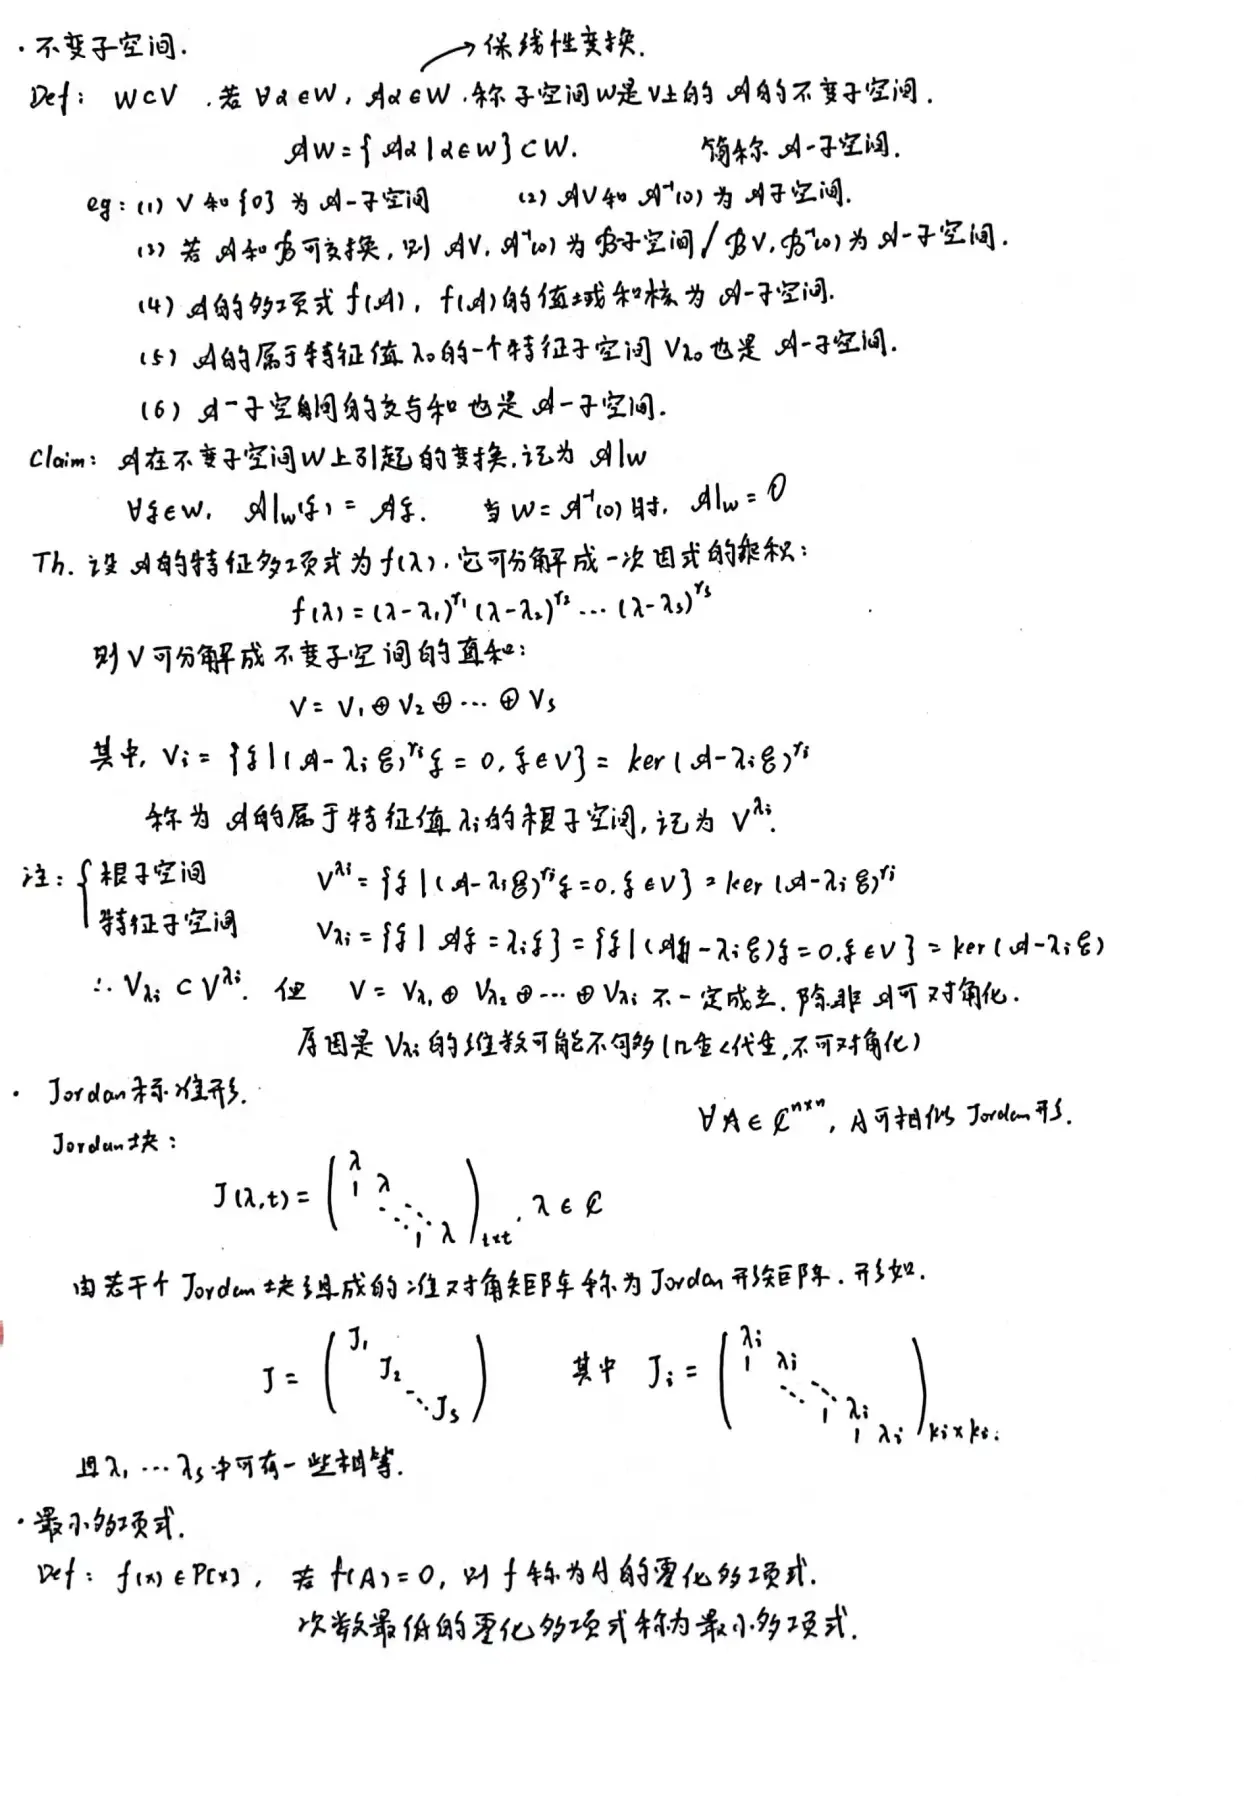 · 不变子空间.
→保线性变换.
Def: W⊂V .若 ∀α∈W, 𝒜α∈W .称子空间W是V上的 𝒜的不变子空间.
𝒜W={𝒜α|α∈W}⊂W. 简称 𝒜-子空间.
eg: (1) V和{0}为 𝒜-子空间 (2) 𝒜V和 𝒜⁻¹(0)为 𝒜子空间.
(3) 若 𝒜和ℬ可交换, 则 𝒜V, 𝒜⁻¹(0)为 ℬ子空间/ℬV, ℬ⁻¹(0)为 𝒜-子空间.
(4) 𝒜的多项式 f(𝒜), f(𝒜)的值域和核为 𝒜-子空间.
(5) 𝒜的属于特征值 λ₀的一个特征子空间 V_λ₀也是 𝒜-子空间.
(6) 𝒜-子空间的交与和也是 𝒜-子空间.
Claim: 𝒜在不变子空间W上引起的变换,记为 𝒜|w
∀ξ∈W, 𝒜|w(ξ) = 𝒜ξ. 当 W=𝒜⁻¹(0)时, 𝒜|w = 0
Th. 设 𝒜的特征多项式为f(λ),它可分解成一次因式的乘积:
f(λ)=(λ-λ₁)^r₁ (λ-λ₂)^r₂ ... (λ-λs)^rs
则V可分解成不变子空间的直和:
V= V₁⊕V₂⊕...⊕Vs
其中, Vi = {ξ|(𝒜-λiℰ)^ri ξ = 0, ξ∈V} = ker(𝒜-λiℰ)^ri
称为 𝒜的属于特征值 λi的根子空间,记为 V^λi.
注: { 根子空间 V^λi = {ξ|(𝒜-λiℰ)^ri ξ=0, ξ∈V} = ker(𝒜-λiℰ)^ri
特征子空间 V_λi = {ξ| 𝒜ξ=λiξ} = {ξ|(𝒜-λiℰ)ξ=0, ξ∈V} = ker(𝒜-λiℰ)
∴ V_λi ⊂ V^λi. 但 V= V_λ₁⊕ V_λ₂⊕...⊕ V_λi 不一定成立, 除非 𝒜可对角化.
原因是 V_λi 的维数可能不够多(几重<代重,不可对角化)
· Jordan标准形.
∀A∈ℂ^n×n, A可相似 Jordan形.
Jordan块:
J(λ,t)= ( λ 1 λ ⋱ ⋱ 1 λ )t×t , λ∈ℂ
由若干个Jordan块组成的准对角矩阵称为Jordan形矩阵. 形如.
J = ( J₁ J₂ ⋱ Js ) 其中 Ji = ( λi 1 λi ⋱ ⋱ 1 λi 1 λi )ki×ki.
且λ₁ ... λs中可有一些相等.
· 最小多项式.
Def: f(x)∈P[x], 若 f(A)=0, 则 f 称为A的零化多项式.
次数最低的零化多项式称为最小多项式.